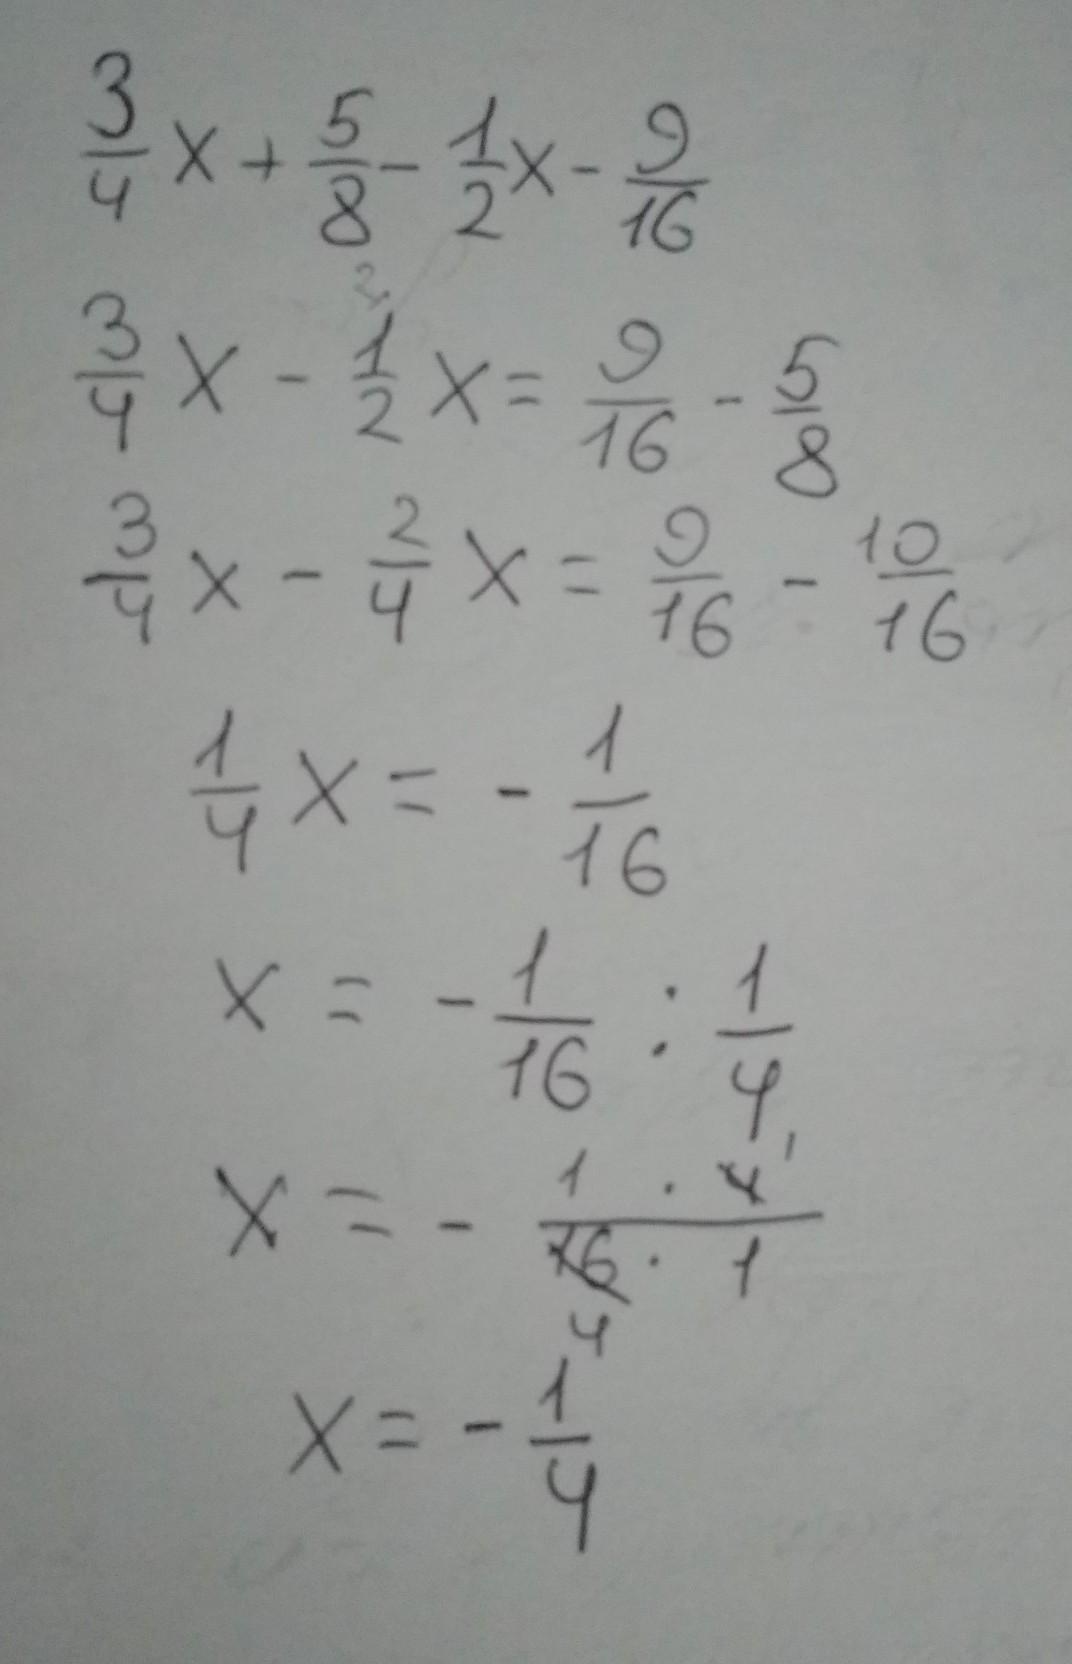 3/4 x + 5/8 - 1/2 x - 9/16
3/4 x - 1/2 x = 9/16 - 5/8
3/4 x - 2/4 x = 9/16 - 10/16
1/4 x = - 1/16
x = - 1/16 : 1/4
x = - (1 · 4 1)/(16 4 · 1)
x = - 1/4